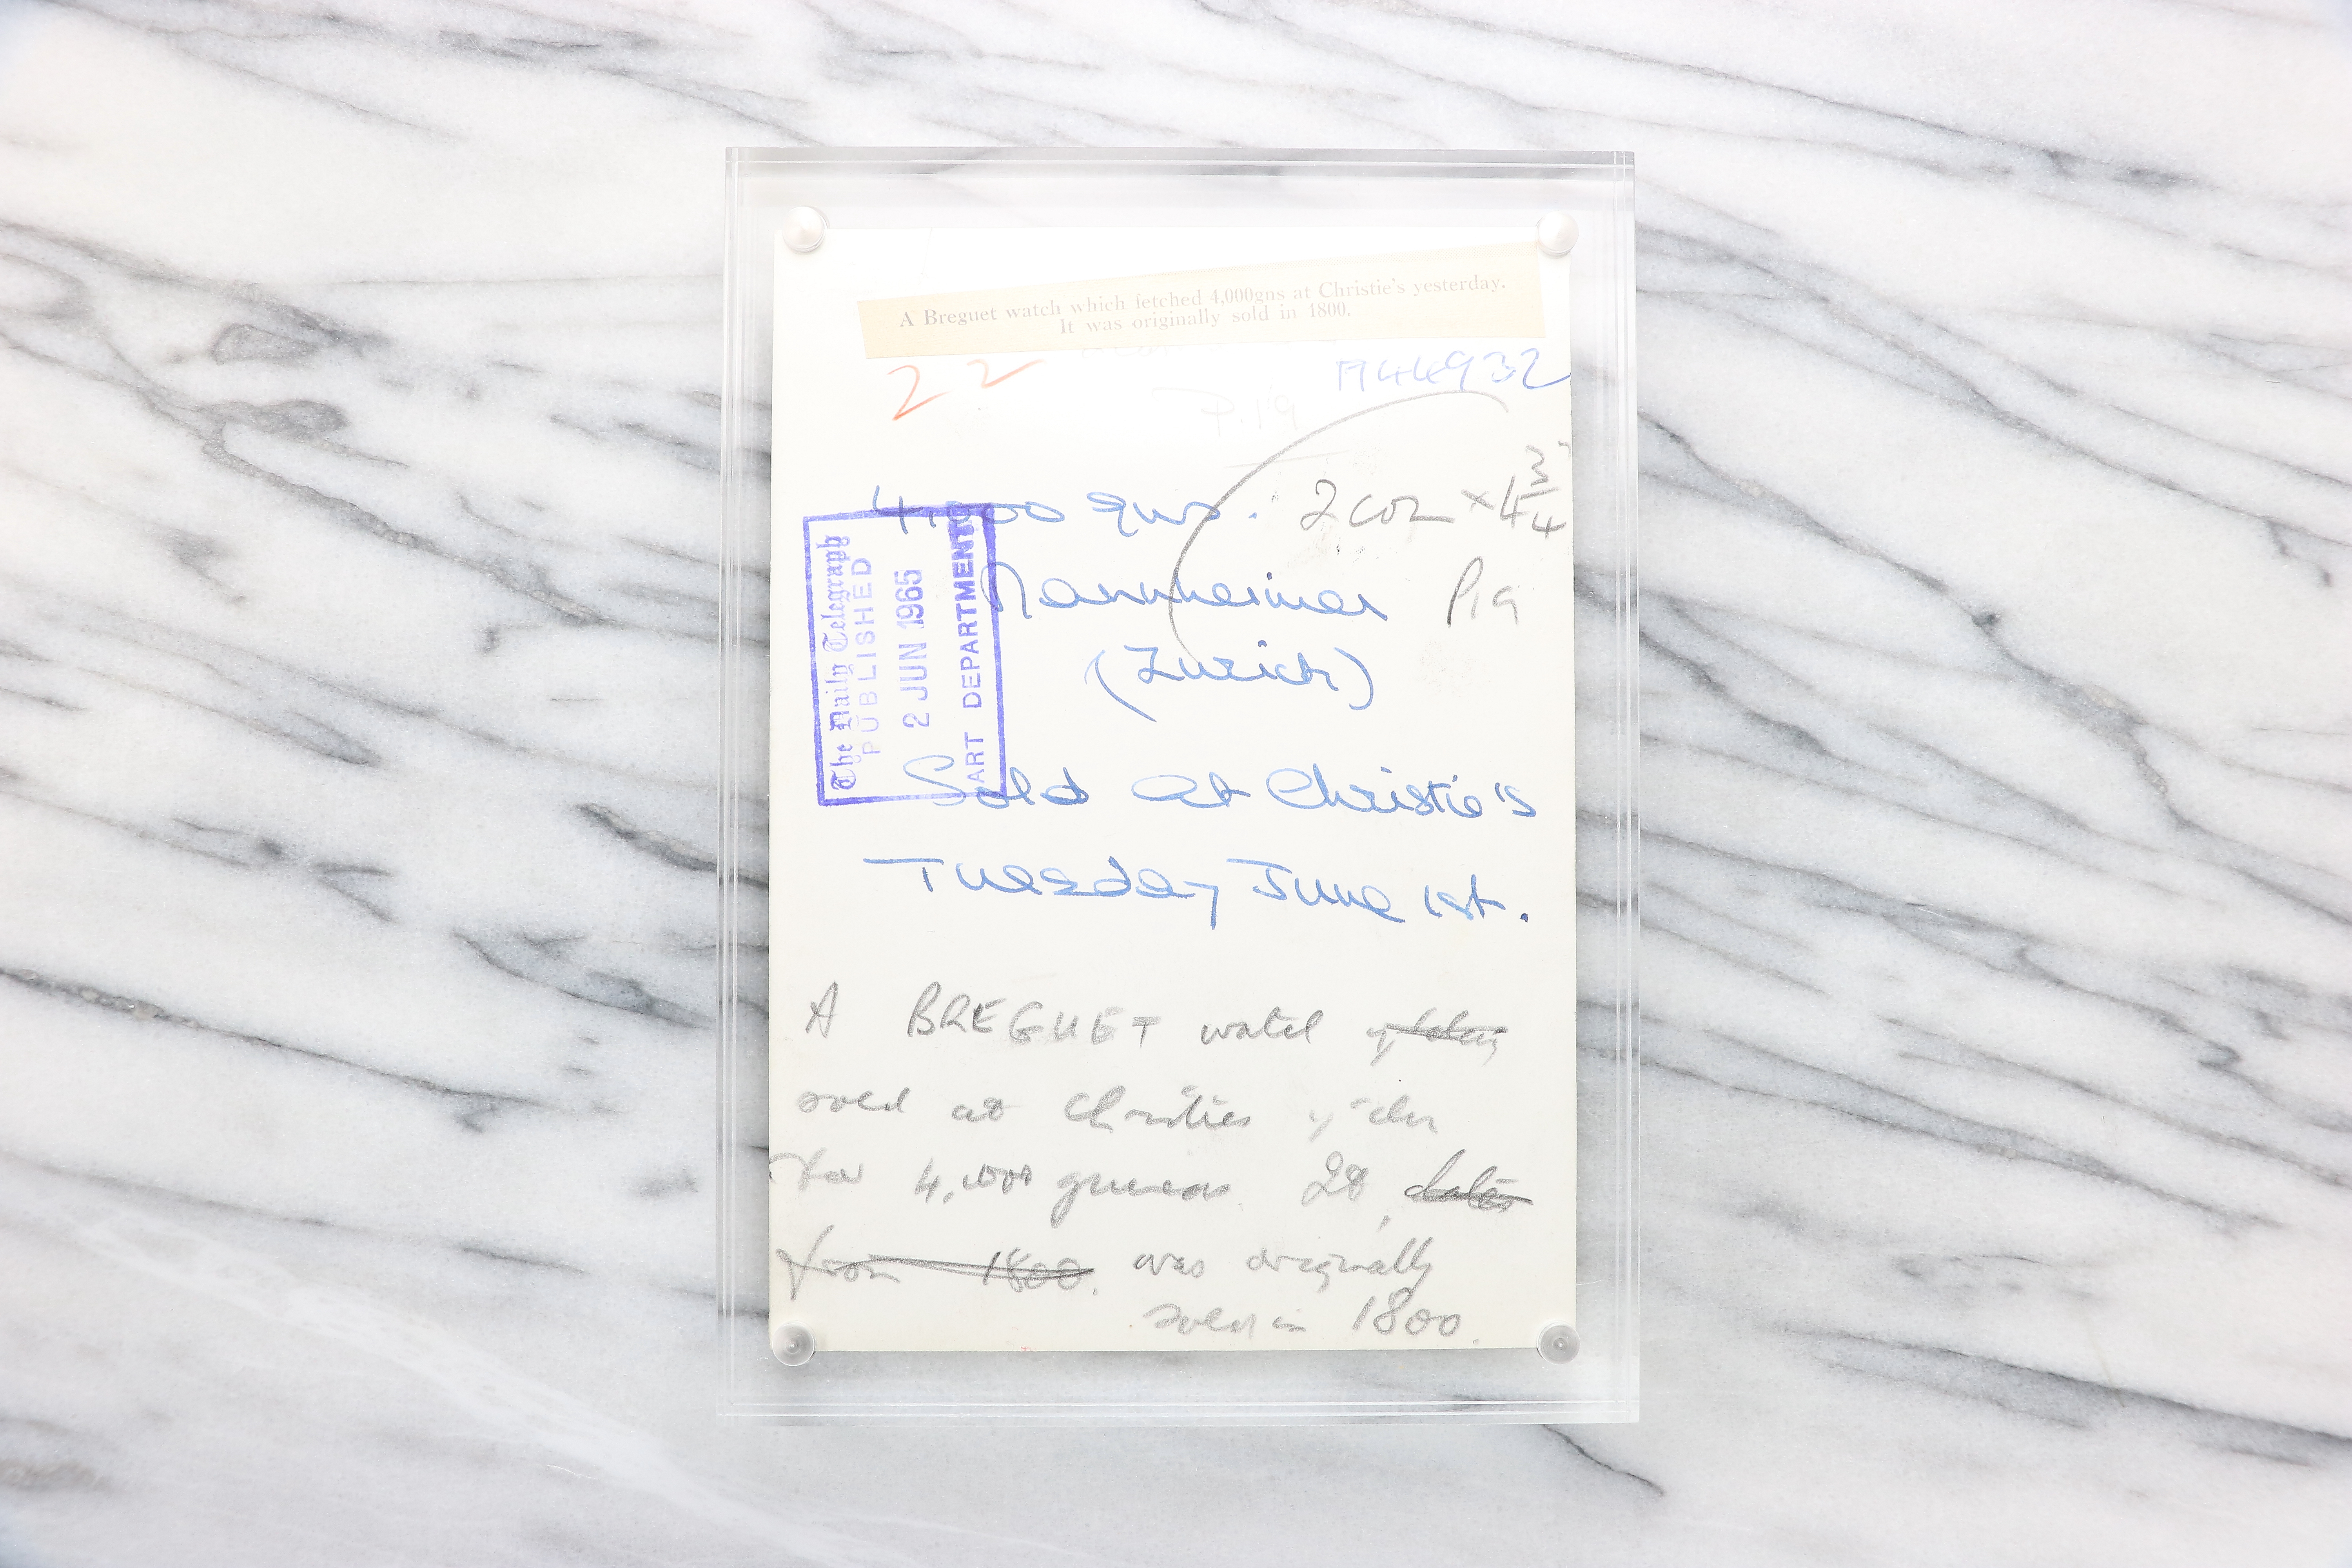 A Breguet watch which fetched 4,000gns at Christie's yesterday.
It was originally sold in 1800.
22
P.19
4,000 gns. 2 col × 4 3/4
Mannheimer P19
(Zurich)
The Daily Telegraph
PUBLISHED
2 JUN 1965
ART DEPARTMENT
Sold at Christie's
Tuesday June 1st.
A BREGUET watch
sold at Christies
for 4,000 guineas
from 1800. was originally
sold in 1800.